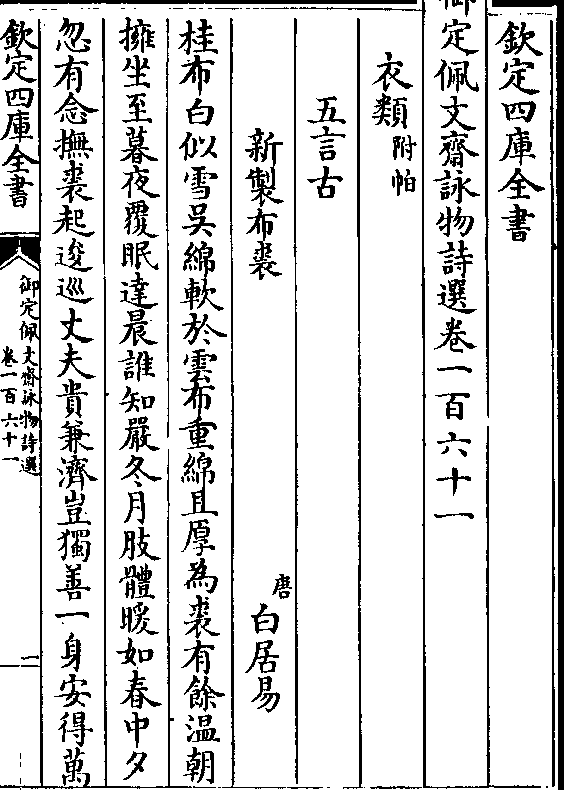 欽定四庫全書
御定佩文齋詠物詩選卷一百六十一
衣類附帕
五言古
新製布裘
唐白居易
桂布白似雪吳綿軟於雲布重綿且厚為裘有餘温朝
擁坐至暮夜覆眠達晨誰知嚴冬月肢體暖如春中夕
忽有念撫裘起逡巡丈夫貴兼濟豈獨善一身安得萬
欽定四庫全書
御定佩文齋詠物詩選
卷一百六十一
一